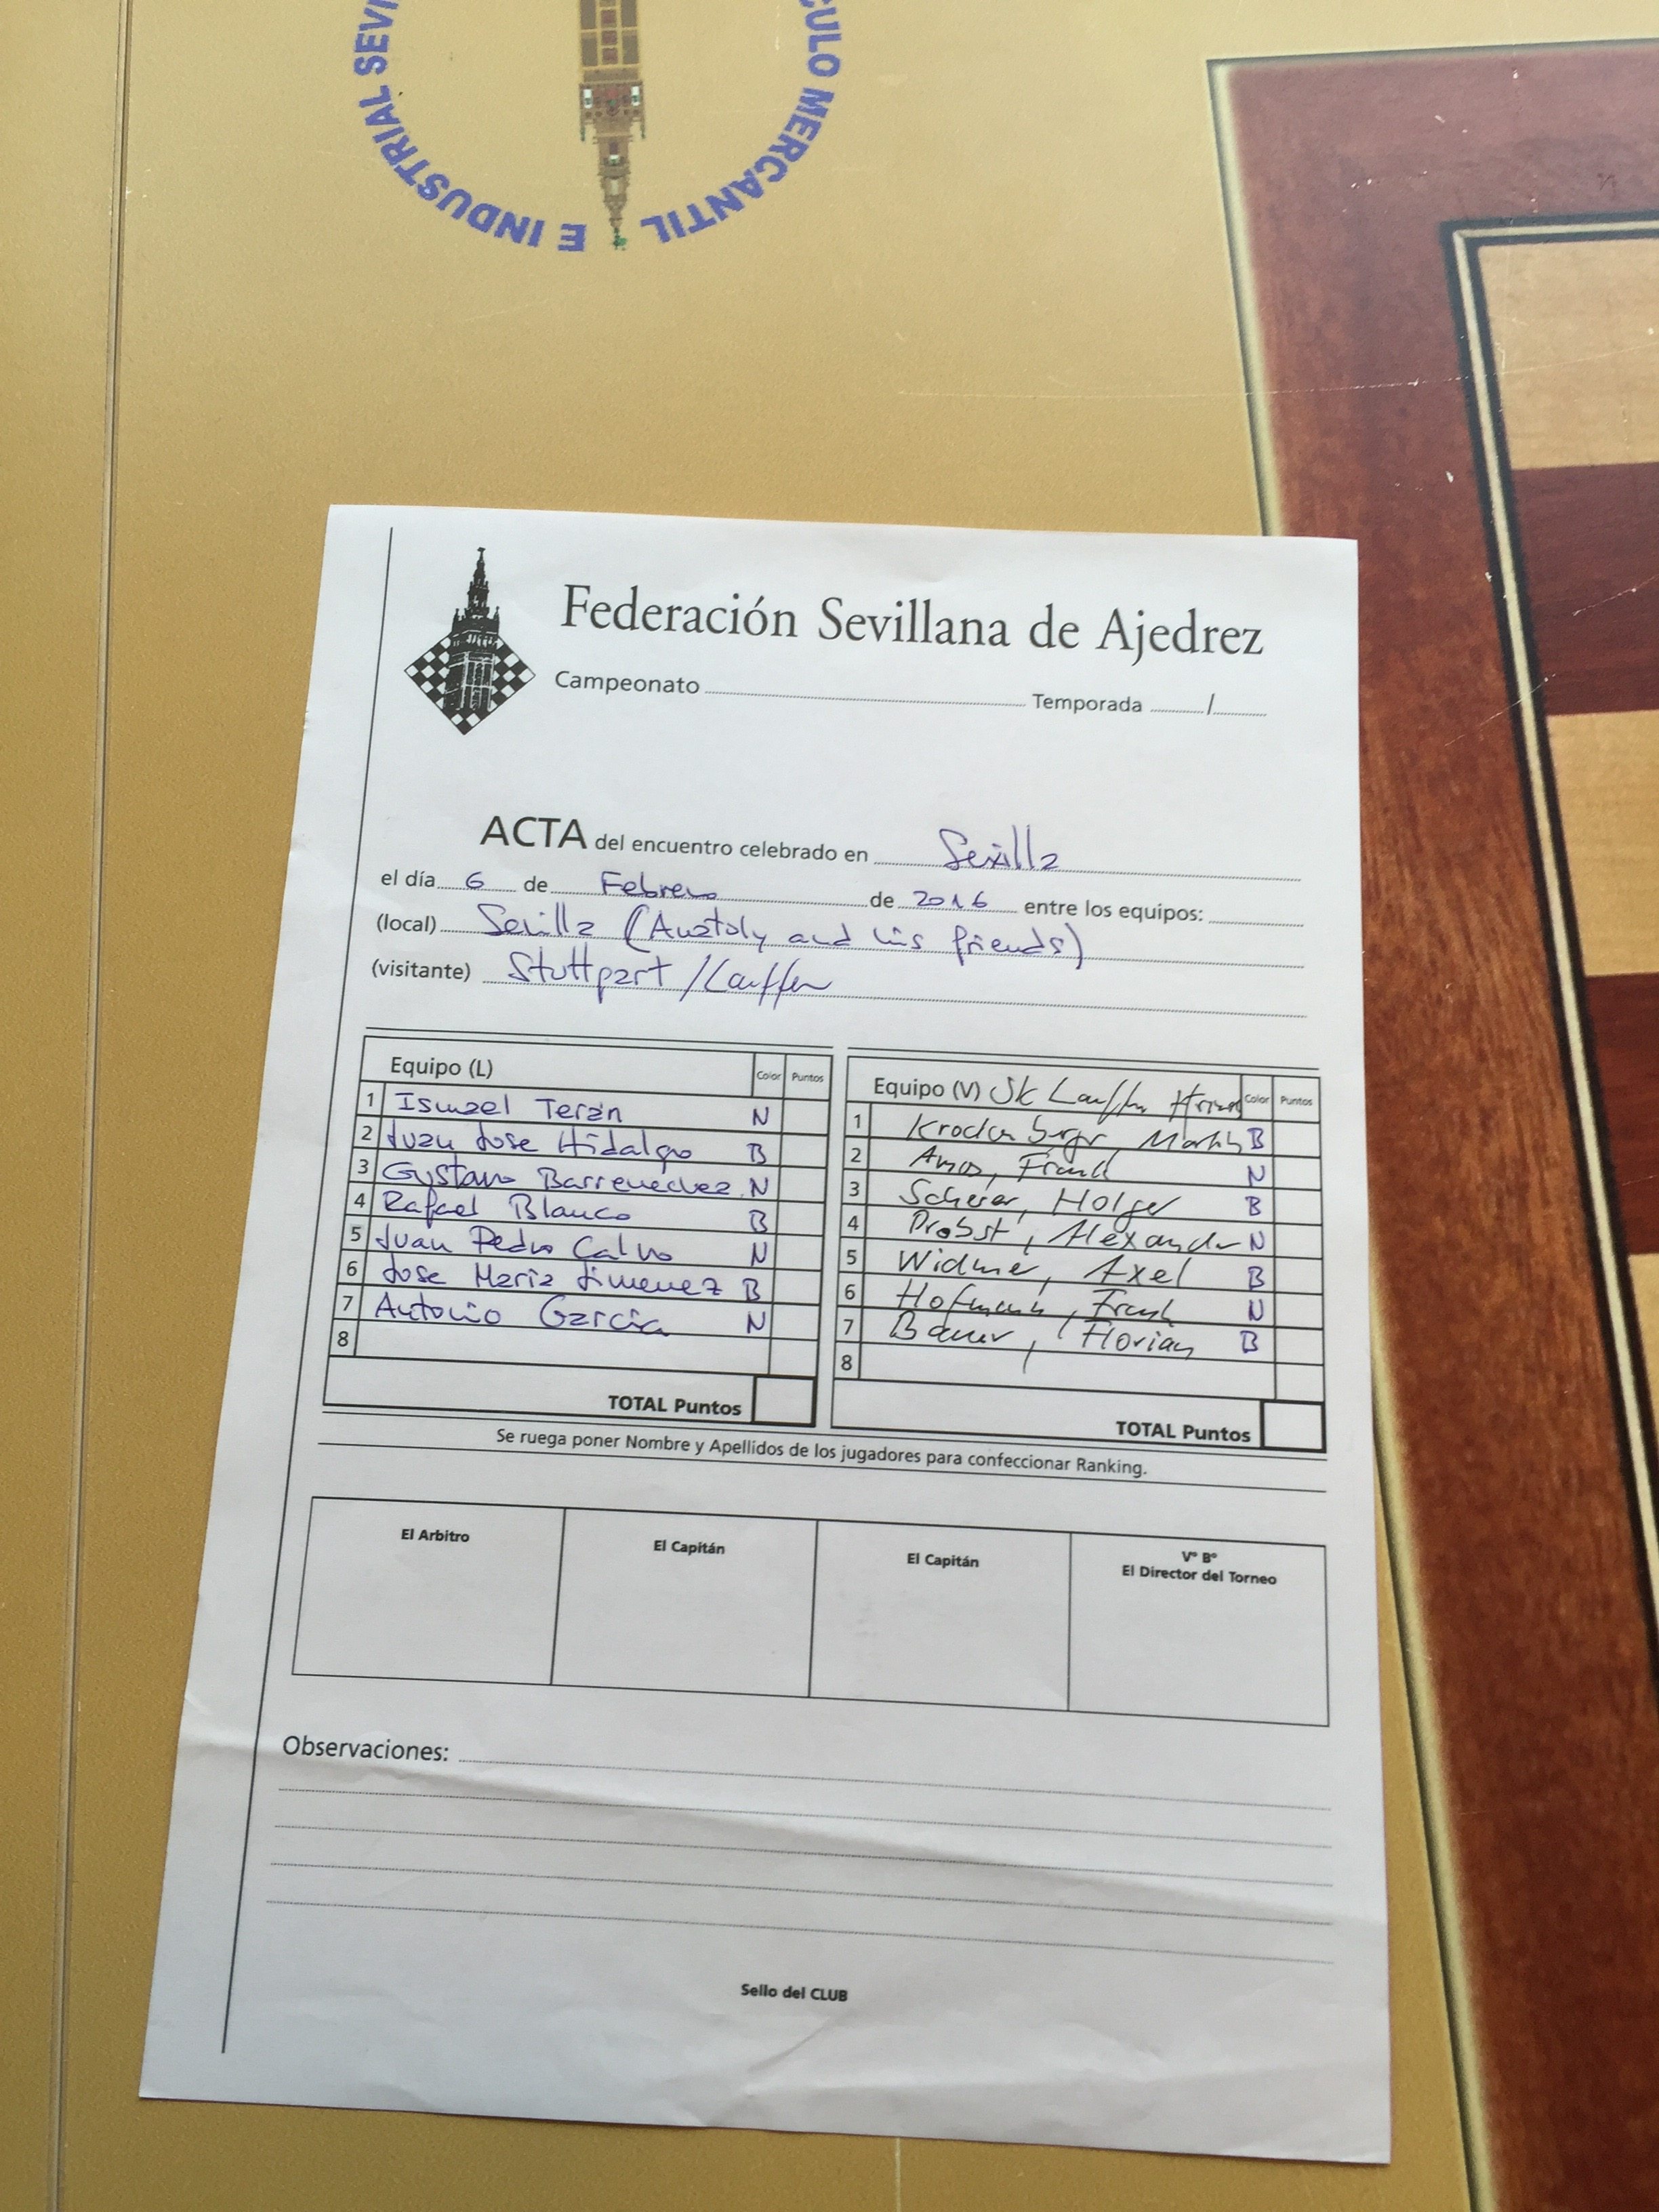 CULO MERCANTIL
E INDUSTRIAL SEVI
Federación Sevillana de Ajedrez
Campeonato Temporada /
ACTA del encuentro celebrado en Sevilla
el día 6 de Febrero de 2016 entre los equipos:
(local) Sevilla (Anatoly and his friends)
(visitante) Stuttgart / Lauffen
Equipo (L) Color Puntos
1 Ismael Terán N
2 Juan Jose Hidalgo B
3 Gustavo Barrenechea N
4 Rafael Blanco B
5 Juan Pedro Calvo N
6 Jose Maria Jimenez B
7 Antonio García N
8
TOTAL Puntos
Equipo (V) SK Lauffen Color Puntos
1 B
2 Amos, Frank N
3 Holger B
4 Probst, Alexander N
5 Widmer, Axel B
6 Hofmann, Frank N
7 Bauer, Florian B
8
TOTAL Puntos
Se ruega poner Nombre y Apellidos de los jugadores para confeccionar Ranking.
El Arbitro
El Capitán
El Capitán
Vº Bº
El Director del Torneo
Observaciones:
Sello del CLUB